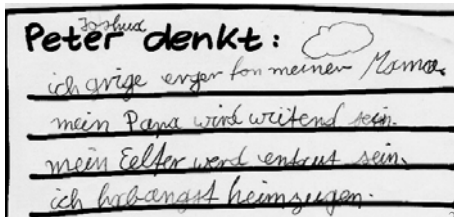 Joshua
Peter denkt:
ich grige erger fon meiner Mama.
mein Papa wird wütend sein.
mein Eelter werd enteut sein.
ich habangst heimzugen.